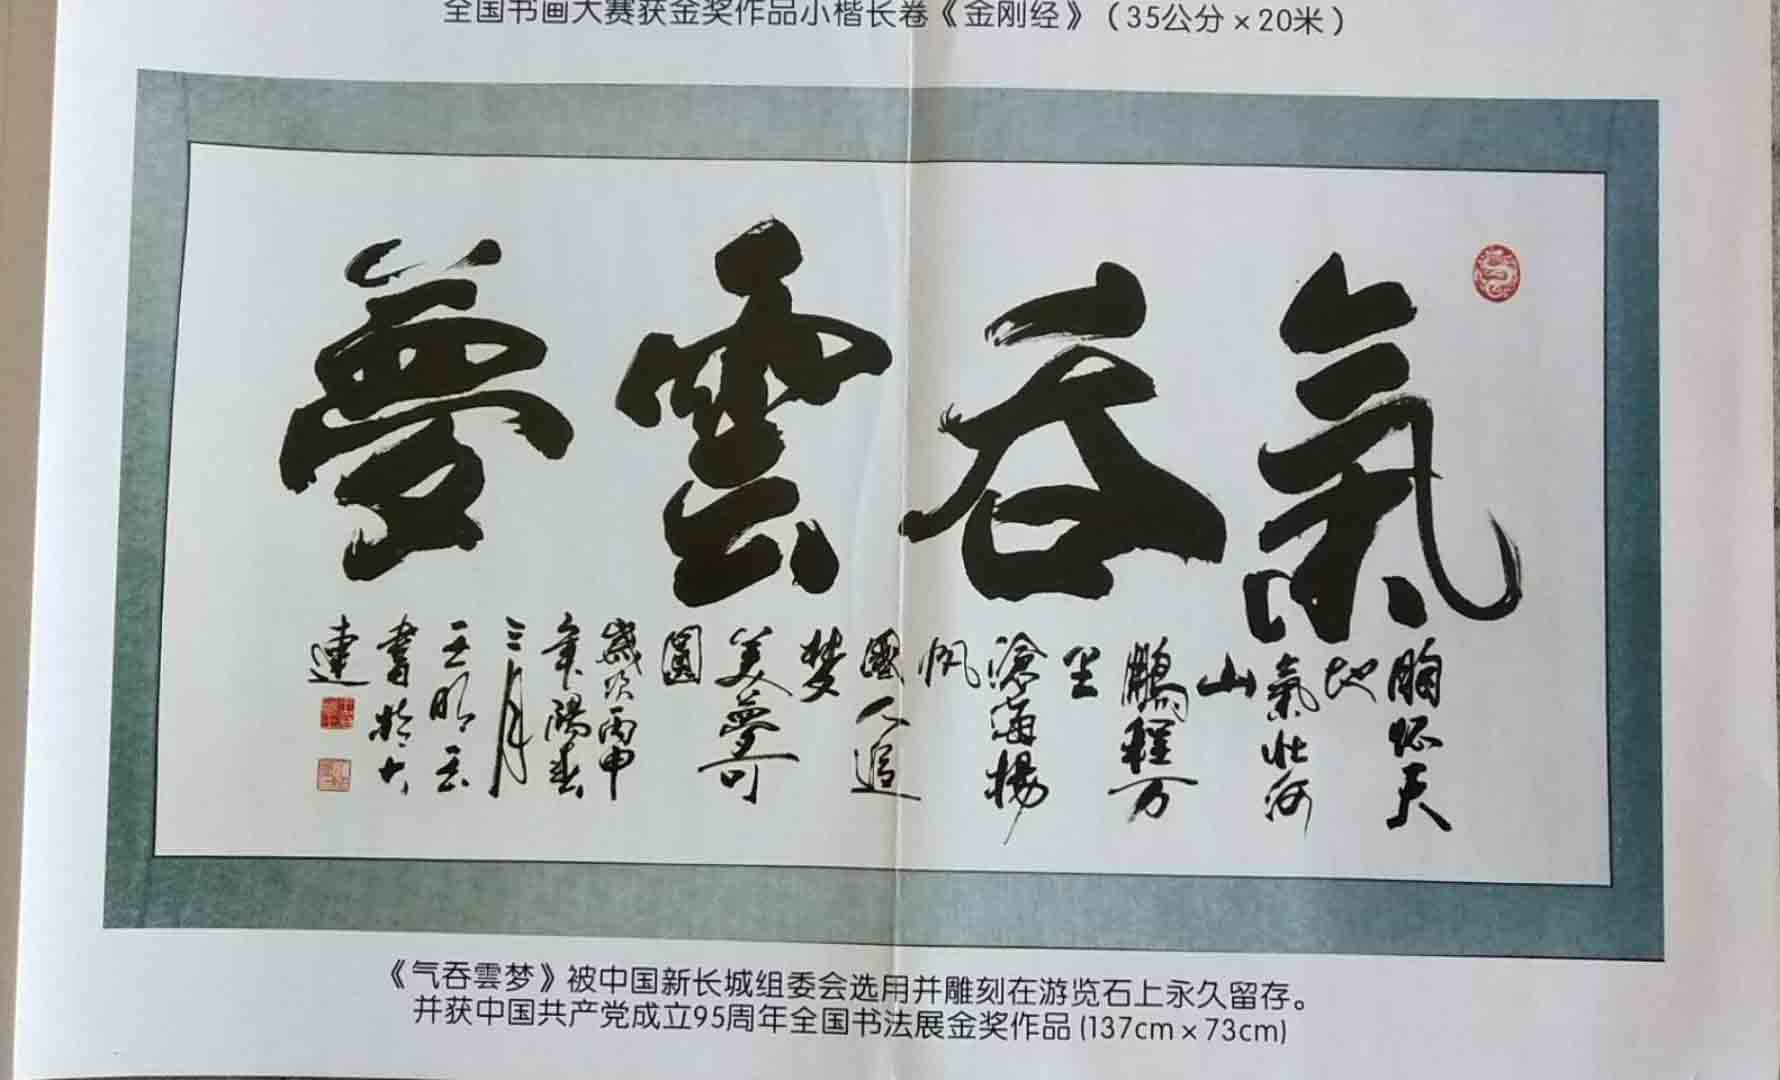 全国书画大赛获金奖作品小楷长卷《金刚经》（35公分×20米）
氣吞雲夢
胸怀天
地
氣壮河
山
鵬程万
里
滄海揚
帆
國人追
梦
美夢可
圓
歲次丙申
年陽春
三月
王明
書於大
連
《气吞雲梦》被中国新长城组委会选用并雕刻在游览石上永久留存。
并获中国共产党成立95周年全国书法展金奖作品(137cm×73cm)